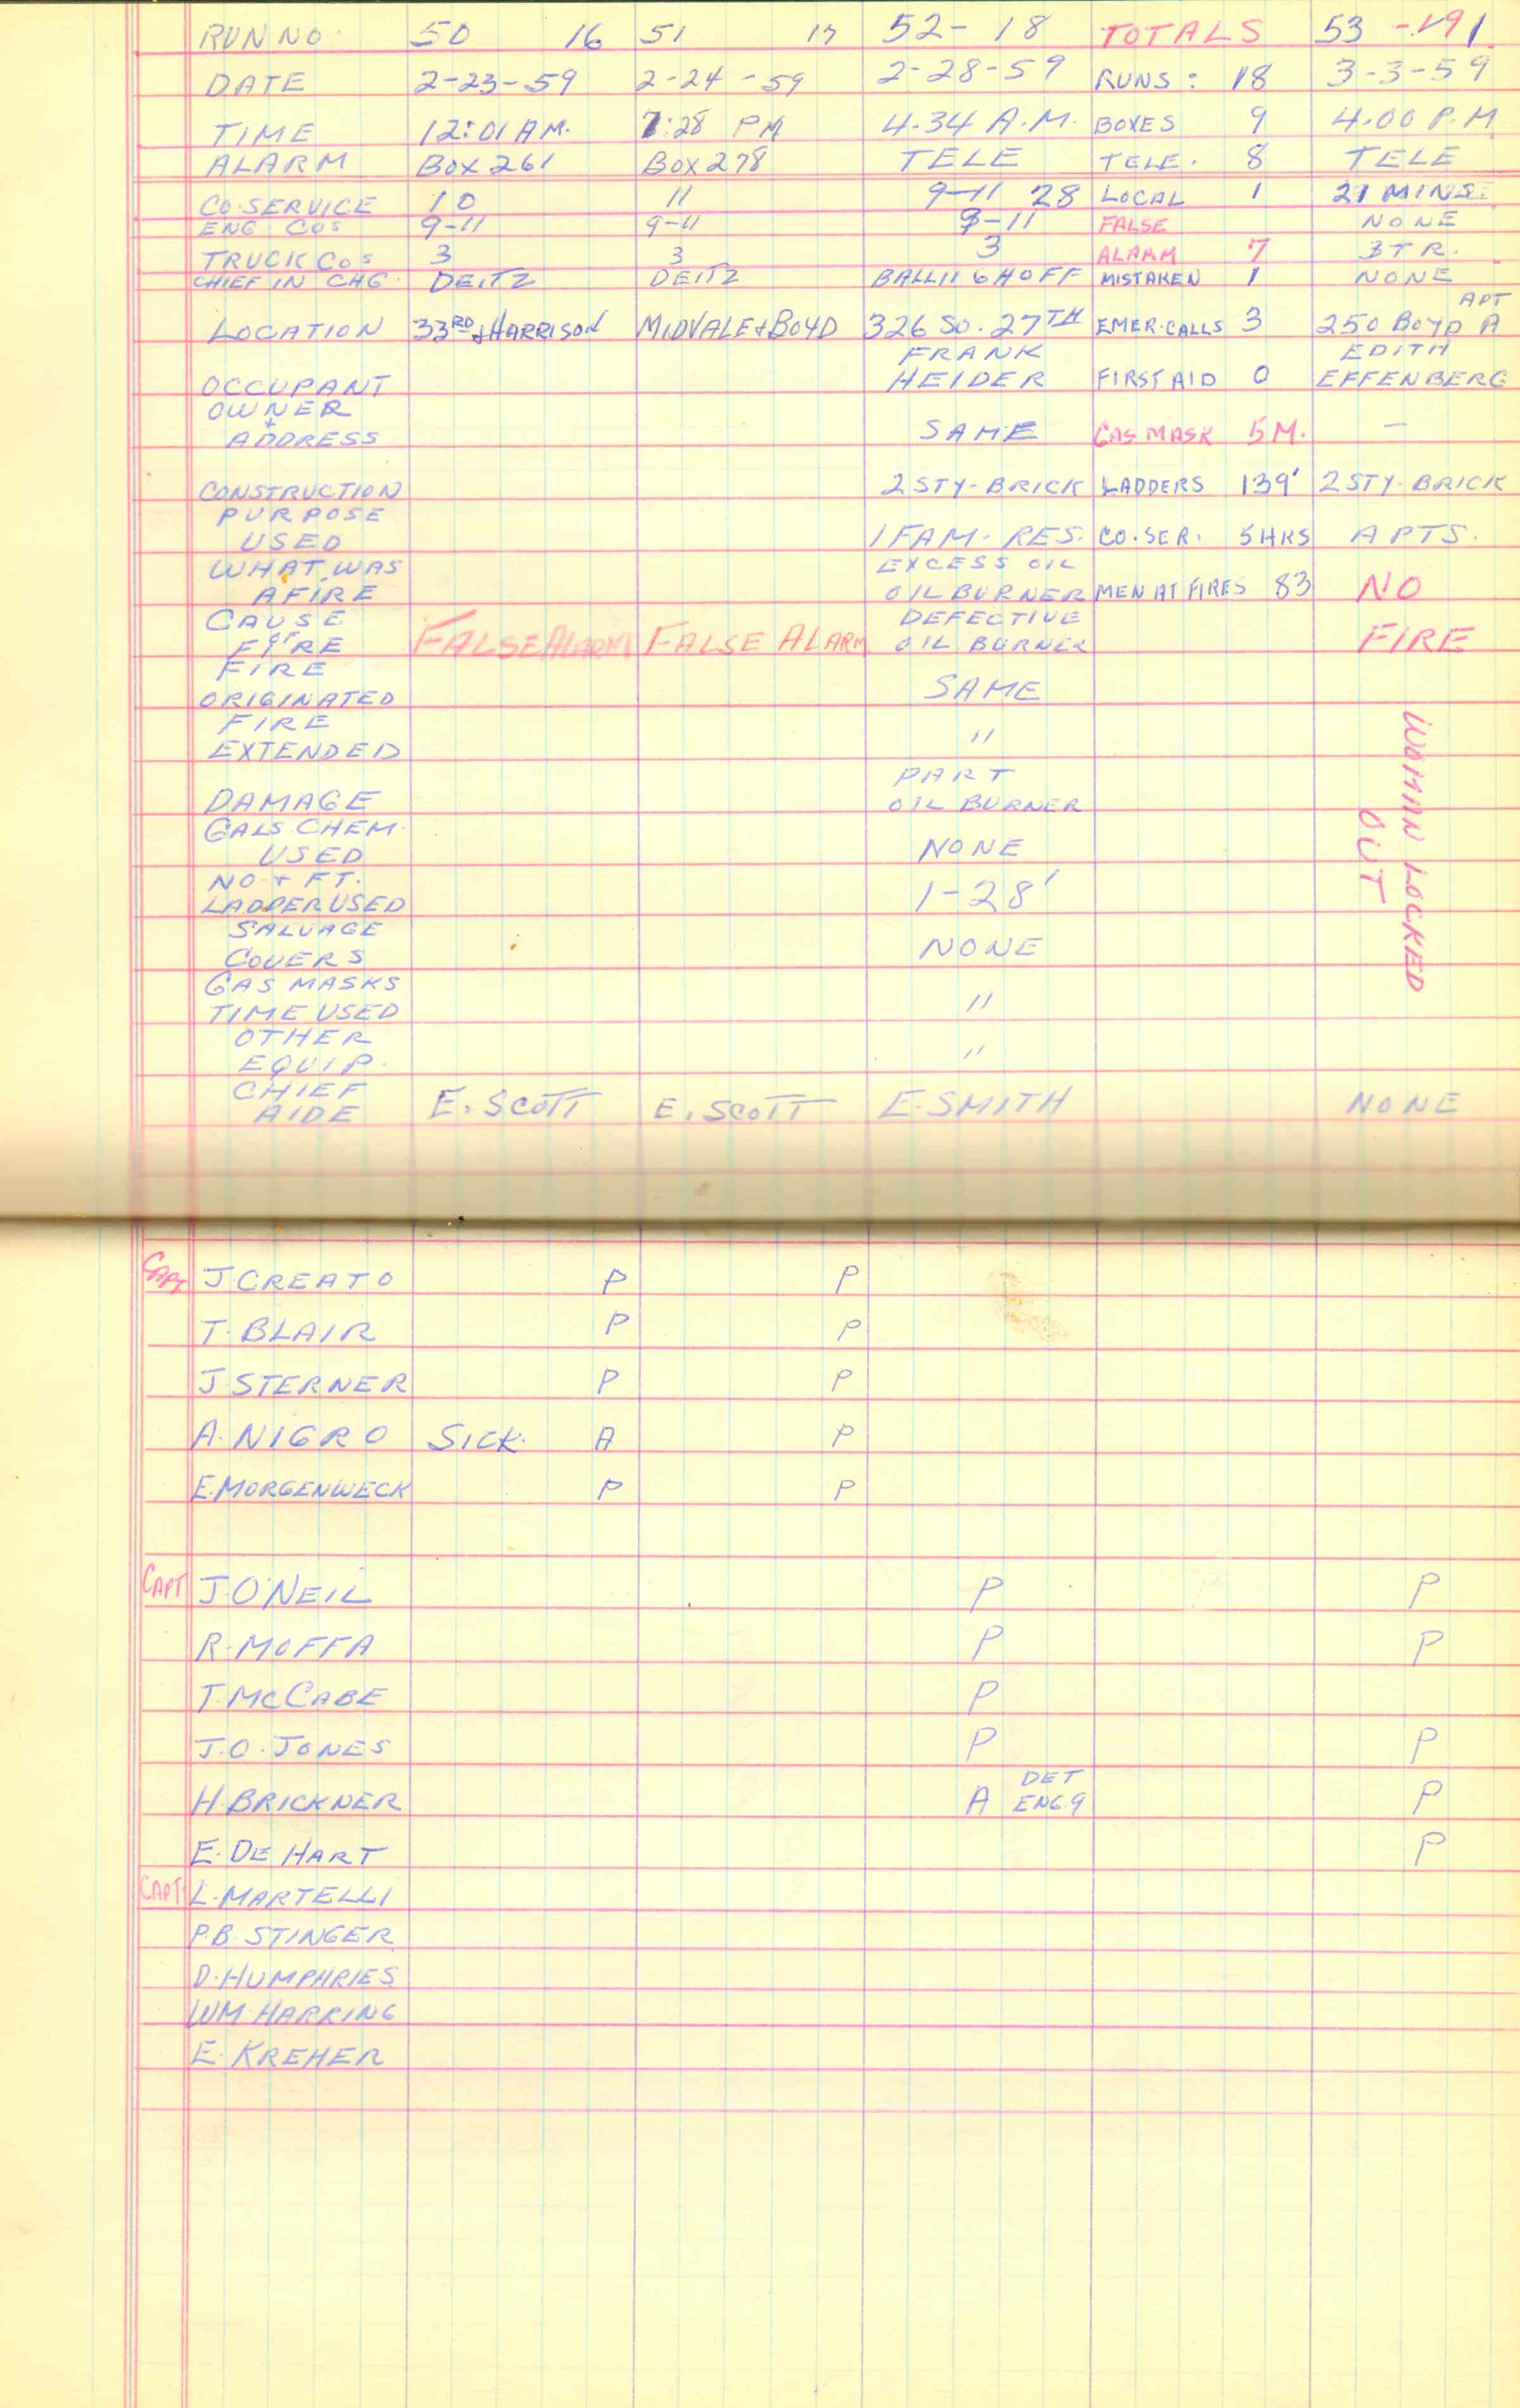 RUN NO. 50 16 51 17 52-18 TOTALS 53
DATE 2-23-59 2-24-59 2-28-59 RUNS: 18 3-3-59
TIME 12:01 AM. 7:28 PM 4.34 A.M. BOXES 9 4.00 P.M
ALARM BOX 261 BOX 278 TELE TELE. 8 TELE
CO. SERVICE 10 11 9-11 28 LOCAL 1 21 MINS.
ENG COS 9-11 9-11 9-11 FALSE NONE
TRUCK COS 3 3 3 ALARM 7 3 TR.
CHIEF IN CHG. DEITZ DEITZ MISTAKEN 1 NONE
APT
LOCATION 33RD & HARRISON MIDVALE & BOYD 326 SO. 27TH EMER. CALLS 3 250 BOYD A
FRANK EDITH
OCCUPANT HEIDER FIRST AID 0 EFFENBERG
OWNER
+
ADDRESS SAME GAS MASK 5 M. —
CONSTRUCTION 2 STY-BRICK LADDERS 139' 2 STY-BRICK
PURPOSE
USED 1 FAM. RES. CO. SER. 5 HRS APTS.
WHAT WAS EXCESS OIL
AFIRE OIL BURNER MEN AT FIRES 83 NO
CAUSE DEFECTIVE
OF FIRE FALSE ALARM FALSE ALARM OIL BURNER FIRE
FIRE
ORIGINATED SAME
FIRE
EXTENDED "
WOMAN LOCKED
OUT
PART
DAMAGE OIL BURNER
GALS CHEM.
USED NONE
NO + FT.
LADDER USED 1-28'
SALVAGE
COVERS NONE
GAS MASKS
TIME USED "
OTHER
EQUIP. "
CHIEF
AIDE E. SCOTT E. SCOTT E. SMITH NONE
CAPT J. CREATO P P
T. BLAIR P P
J. STERNER P P
A. NIGRO SICK. A P
E. MORGENWECK P P
CAPT J. O'NEIL P P
R. MOFFA P P
T. MCCABE P
J. O. JONES P P
H. BRICKNER A DET ENG. 9 P
E. DE HART P
CAPT. L. MARTELLI
P.B. STINGER
D. HUMPHRIES
WM. HARRING
E. KREHER